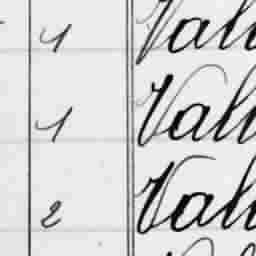 1 Vall
1 Vall
2 Vall